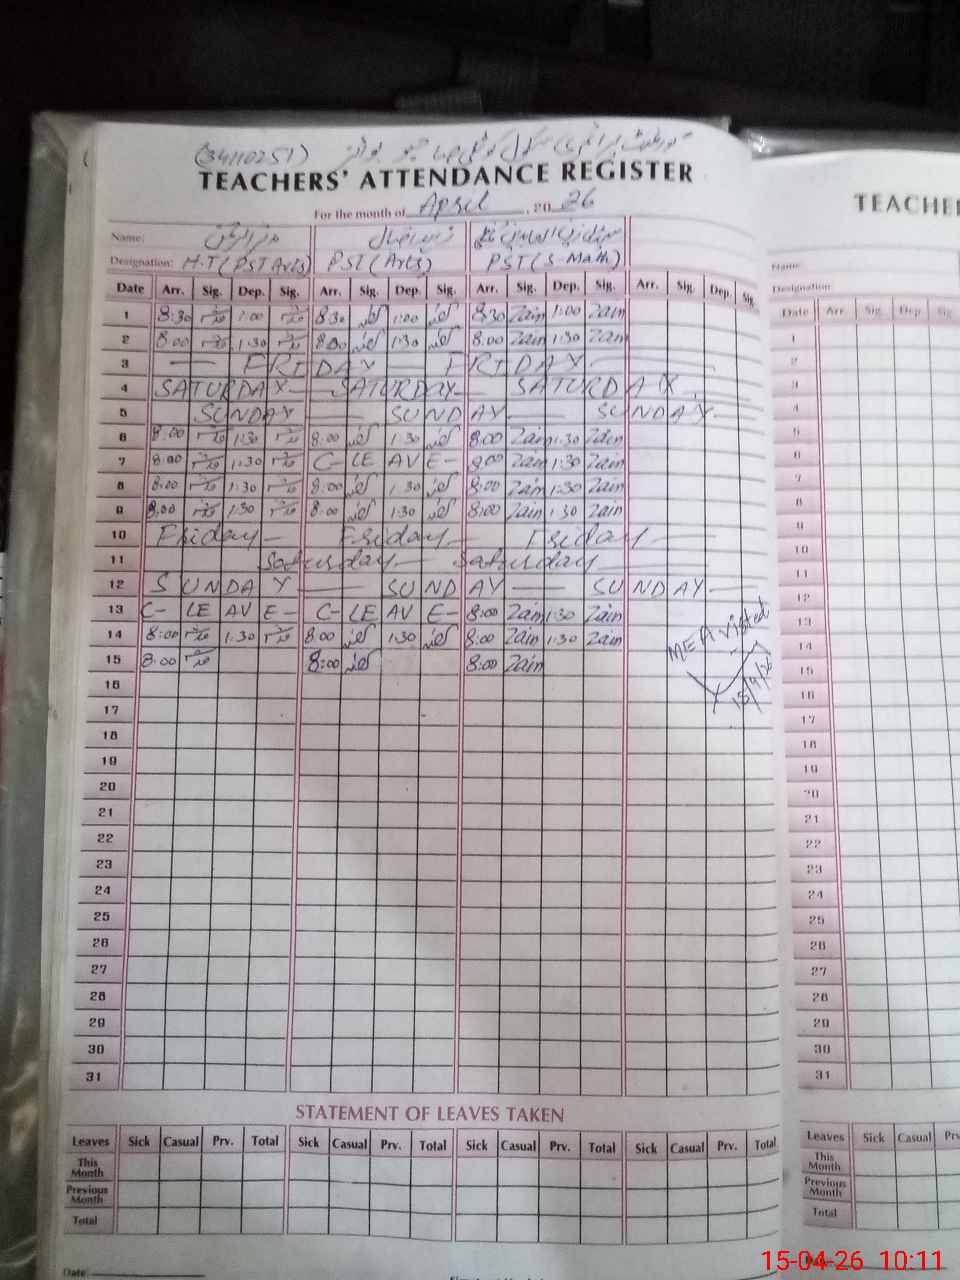 (34110251) گورنمنٹ پرائمری سکول
TEACHERS' ATTENDANCE REGISTER
For the month of April, 2026
Name:
Designation: H.T (PST Arts) PST (Arts) PST (S-Math)
Date Arr. Sig. Dep. Sig. Arr. Sig. Dep. Sig. Arr. Sig. Dep. Sig. Arr. Sig. Dep. Sig.
1 8:30 1:00 8:30 1:00 8:30 Zain 1:00 Zain
2 8:00 1:30 8:00 1:30 8:00 Zain 1:30 Zain
3 — FRIDAY — FRIDAY —
4 SATURDAY — SATURDAY — SATURDAY
5 SUNDAY — SUNDAY — SUNDAY —
6 8:00 1:30 8:00 1:30 8:00 Zain 1:30 Zain
7 8:00 1:30 C- LEAVE - 8:00 Zain 1:30 Zain
8 8:00 1:30 8:00 1:30 8:00 Zain 1:30 Zain
9 8:00 1:30 8:00 1:30 8:00 Zain 1:30 Zain
10 Friday — Friday — Friday —
11 Saturday — Saturday —
12 SUNDAY — SUNDAY — SUNDAY —
13 C- LEAVE - C- LEAVE - 8:00 Zain 1:30 Zain
14 8:00 1:30 8:00 1:30 8:00 Zain 1:30 Zain
MEA visited
15 8:00 8:00 8:00 Zain
15/4/26
16
17
18
19
20
21
22
23
24
25
26
27
28
29
30
31
STATEMENT OF LEAVES TAKEN
Leaves Sick Casual Prv. Total Sick Casual Prv. Total Sick Casual Prv. Total Sick Casual Prv. Total
This Month
Previous Month
Total
Date:
TEACHE
Name:
Designation:
Date Arr. Sig. Dep. Sig.
1
2
3
4
5
6
7
8
9
10
11
12
13
14
15
16
17
18
19
20
21
22
23
24
25
26
27
28
29
30
31
Leaves Sick Casual
This Month
Previous Month
Total
15-04-26 10:11